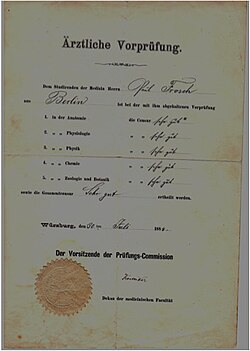 Ärztliche Vorprüfung.
Dem Studirenden der Medizin Herrn Paul Frosch
aus Berlin ist bei der mit ihm abgehaltenen Vorprüfung
1. in der Anatomie die Censur sehr gut
2. „ „ Physiologie „ „ sehr gut
3. „ „ Physik „ „ sehr gut
4. „ „ Chemie „ „ sehr gut
5. „ „ Zoologie und Botanik „ „ sehr gut
sowie die Gesammtcensur Sehr gut ertheilt worden.
Würzburg, den Juli 188
Der Vorsitzende der Prüfungs-Commission
Dekan der medicinischen Facultät